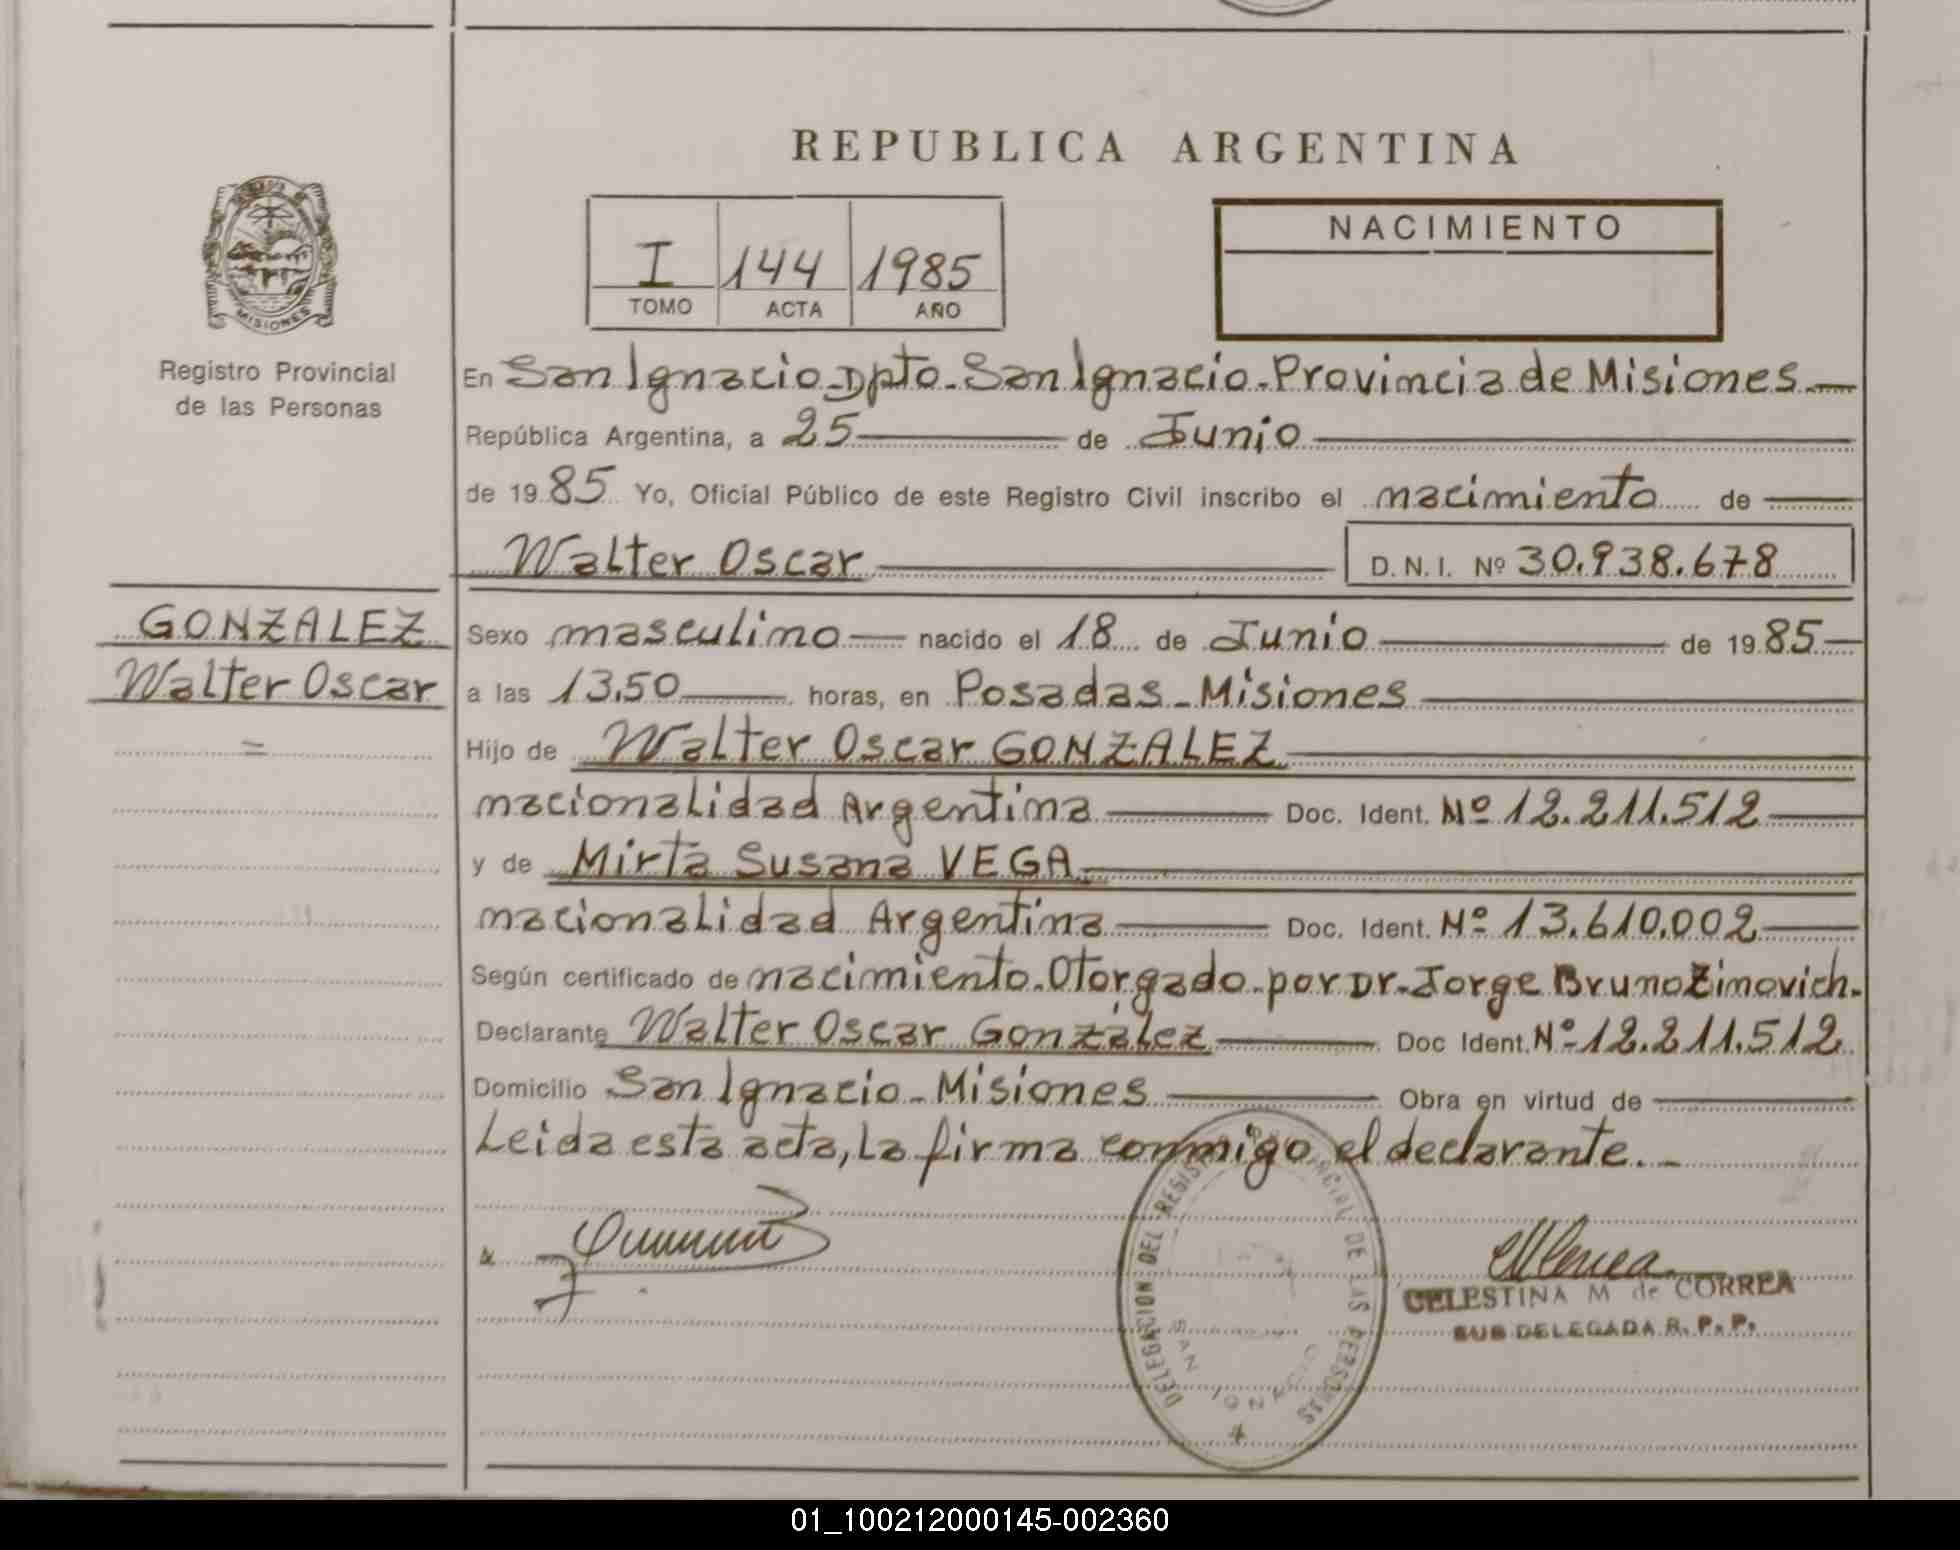 REPUBLICA ARGENTINA
I 144 1985
TOMO ACTA AÑO
NACIMIENTO
MISIONES
Registro Provincial
de las Personas
En San Ignacio - Dpto - San Ignacio - Provincia de Misiones
República Argentina, a 25 de Junio
de 1985 Yo, Oficial Público de este Registro Civil inscribo el nacimiento de
Walter Oscar D.N.I. Nº 30.938.678
GONZALEZ
Walter Oscar
=
Sexo masculino nacido el 18 de Junio de 1985
a las 13,50 horas, en Posadas - Misiones
Hijo de Walter Oscar GONZALEZ
nacionalidad Argentina Doc. Ident. Nº 12.211.512
y de Mirta Susana VEGA
nacionalidad Argentina Doc. Ident. Nº 13.610.002
Según certificado de nacimiento - Otorgado - por Dr. Jorge Bruno Zinovich.
Declarante Walter Oscar González Doc Ident. Nº 12.211.512
Domicilio San Ignacio - Misiones Obra en virtud de
Leida esta acta, la firma conmigo el declarante. -
DELEGACION DEL REGISTRO PROVINCIAL DE LAS PERSONAS
SAN IGNACIO
CELESTINA M de CORREA
SUB DELEGADA R. P. P.
01_100212000145-002360